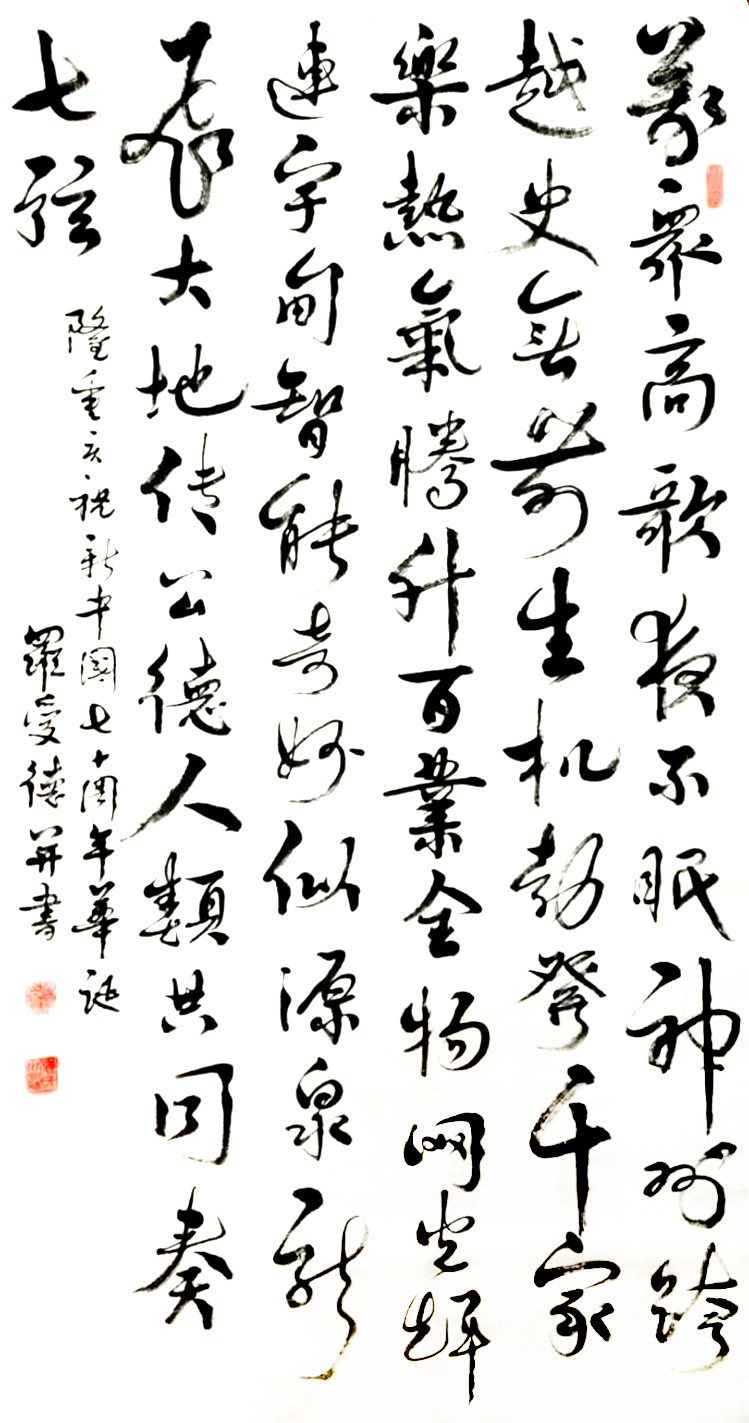 万众高歌夜不眠神州跨
越史無前生机勃發千家
樂熱氣騰升百業全物网光輝
連宇甸智能奇妙似源泉龍
大地传公德人類共同奏
七弦
隆重庆祝新中國七十周年華誕
羅愛德并書